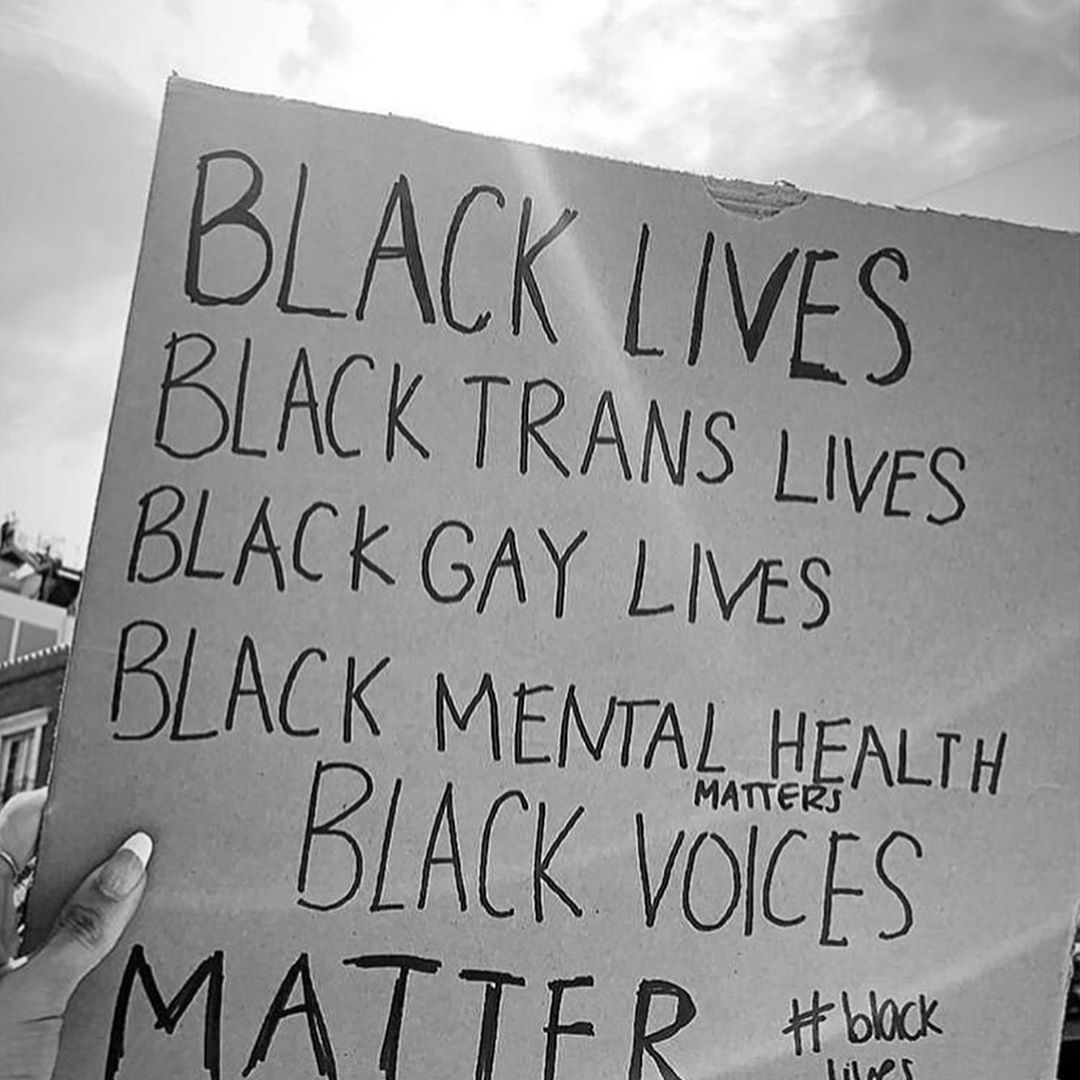 BLACK LIVES
BLACK TRANS LIVES
BLACK GAY LIVES
BLACK MENTAL HEALTH
MATTERS
BLACK VOICES
MATTER
#black
lives